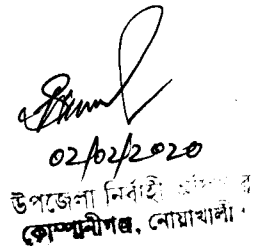 02/02/2020
উপজেলা নির্বাহী অফিসার
কোম্পানীগঞ্জ, নোয়াখালী।